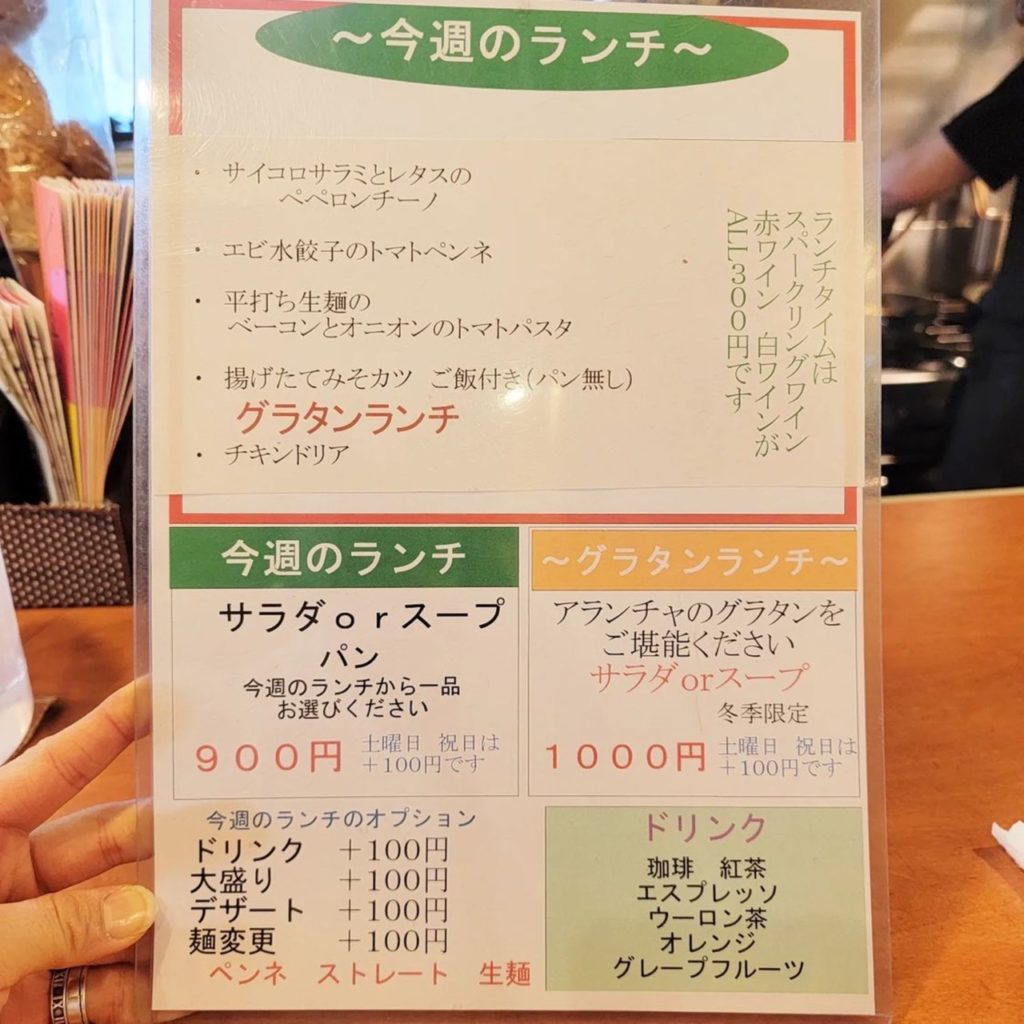 ～今週のランチ～
・ サイコロサラミとレタスの
ペペロンチーノ
・ エビ水餃子のトマトペンネ
・ 平打ち生麺の
ベーコンとオニオンのトマトパスタ
・ 揚げたてみそカツ ご飯付き(パン無し)
グラタンランチ
・ チキンドリア
ランチタイムは
スパークリングワイン
赤ワイン 白ワインが
ALL300円です
今週のランチ
サラダorスープ
パン
今週のランチから一品
お選びください
900円
土曜日 祝日は
+100円です
～グラタンランチ～
アランチャのグラタンを
ご堪能ください
サラダorスープ
冬季限定
1000円
土曜日 祝日は
+100円です
今週のランチのオプション
ドリンク +100円
大盛り +100円
デザート +100円
麺変更 +100円
ペンネ ストレート 生麺
ドリンク
珈琲 紅茶
エスプレッソ
ウーロン茶
オレンジ
グレープフルーツ